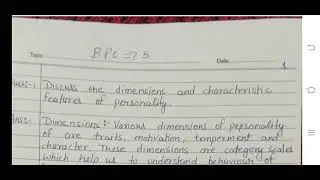 Topic BPC ⇒ 5 Date
1
Ques:-1 Discuss the dimensions and characteristic
features of personality.
Ans:- Dimensions :- Various dimensions of personality
of are traits, motivation, temperment and
character. These dimensions are category scales
which help us to understand behaviour of